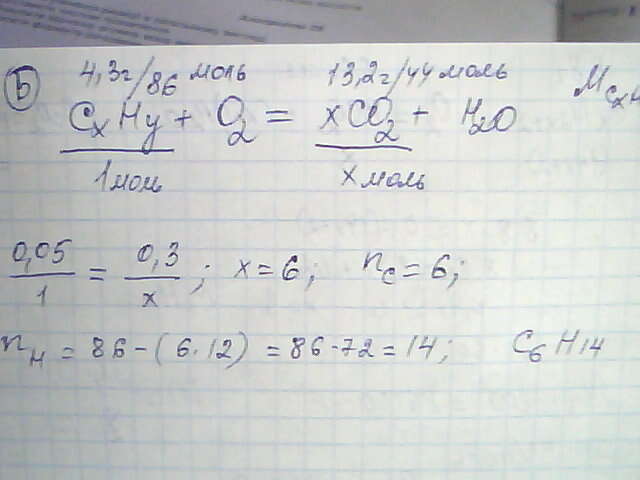 Б
4,3г/86 моль 13,2г/44 моль M CxH
CxHy + O2 = xCO2 + H2O
1 моль x моль
0,05/1 = 0,3/x ; x = 6 ; nC = 6 ;
nH = 86 - (6·12) = 86 - 72 = 14 ; C6H14